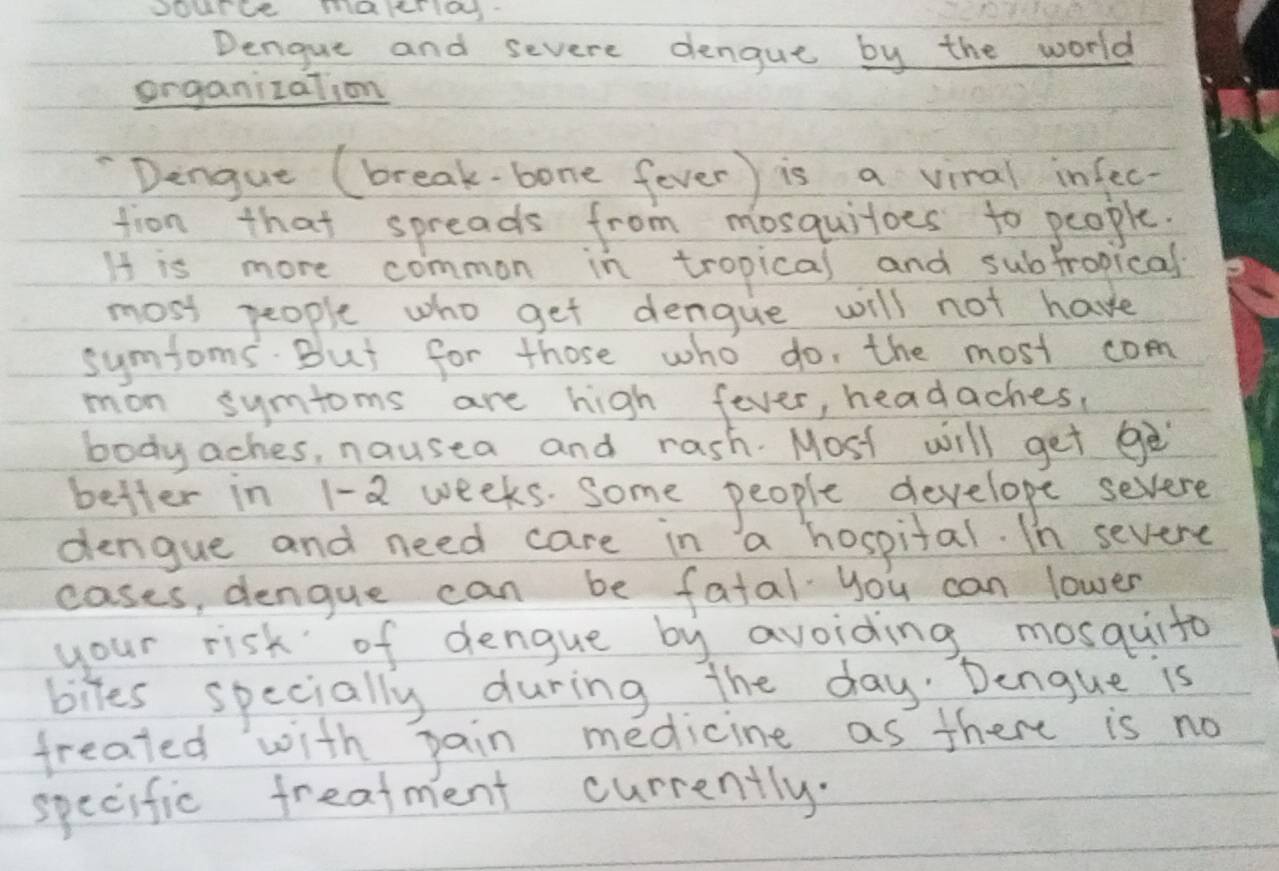 source material.
Dengue and severe dengue by the world
organization
"Dengue (break-bone fever) is a viral infec-
tion that spreads from mosquitoes to people.
It is more common in tropical and subtropical
most people who get dengue will not have
symtoms. But for those who do, the most com
mon symtoms are high fever, headaches,
body aches, nausea and rash. Most will get ge
better in 1-2 weeks. Some people develope severe
dengue and need care in a hospital. In severe
cases, dengue can be fatal. You can lower
your risk of dengue by avoiding mosquito
bites specially during the day. Dengue is
treated with pain medicine as there is no
specific treatment currently.